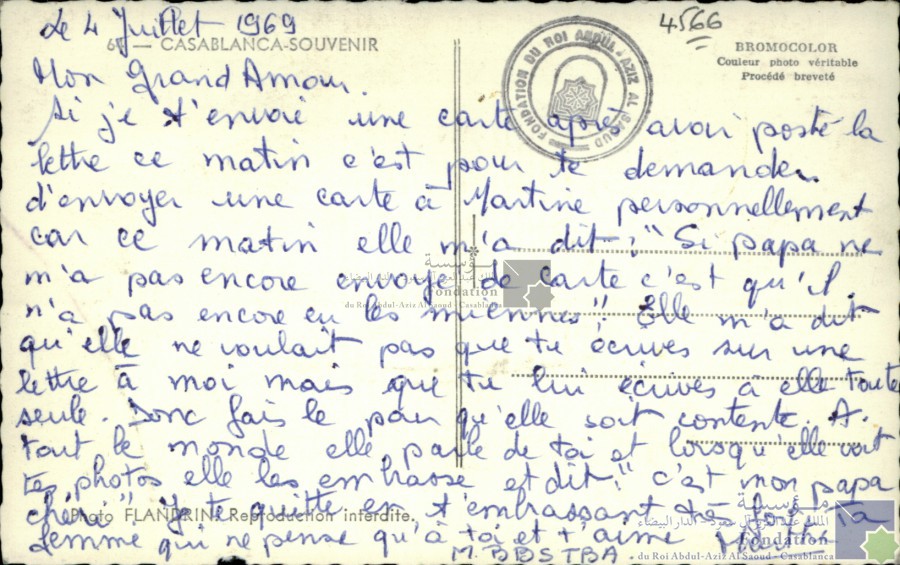 Le 4 Juillet 1969
4566
6 — CASABLANCA-SOUVENIR
BROMOCOLOR
Couleur photo véritable
Procédé breveté
FONDATION DU ROI ABDUL-AZIZ AL SAOUD
Mon Grand Amour.
Si je t'envoie une carte après avoir posté la
lettre ce matin c'est pour te demander
d'envoyer une carte à Martine personnellement
car ce matin elle m'a dit : "Si papa ne
m'a pas encore envoyé de carte c'est qu'il
n'a pas encore eu les miennes". Elle m'a dit
qu'elle ne voulait pas que tu écrives sur une
lettre à moi mais que tu lui écrives à elle toute
seule. Donc fais le pour qu'elle soit contente. A
tout le monde elle parle de toi et lorsqu'elle voit
tes photos elle les embrasse et dit "c'est mon papa
chéri" Je te quitte en t'embrassant Ta
femme qui ne pense qu'à toi et t'aime
M.BBSTBA.
Photo FLANDRIN. Reproduction interdite.
مؤسسة
الملك عبد العزيز آل سعود - الدار البيضاء
Fondation
du Roi Abdul-Aziz Al Saoud - Casablanca
مؤسسة
الملك عبد العزيز آل سعود - الدار البيضاء
Fondation
du Roi Abdul-Aziz Al Saoud - Casablanca